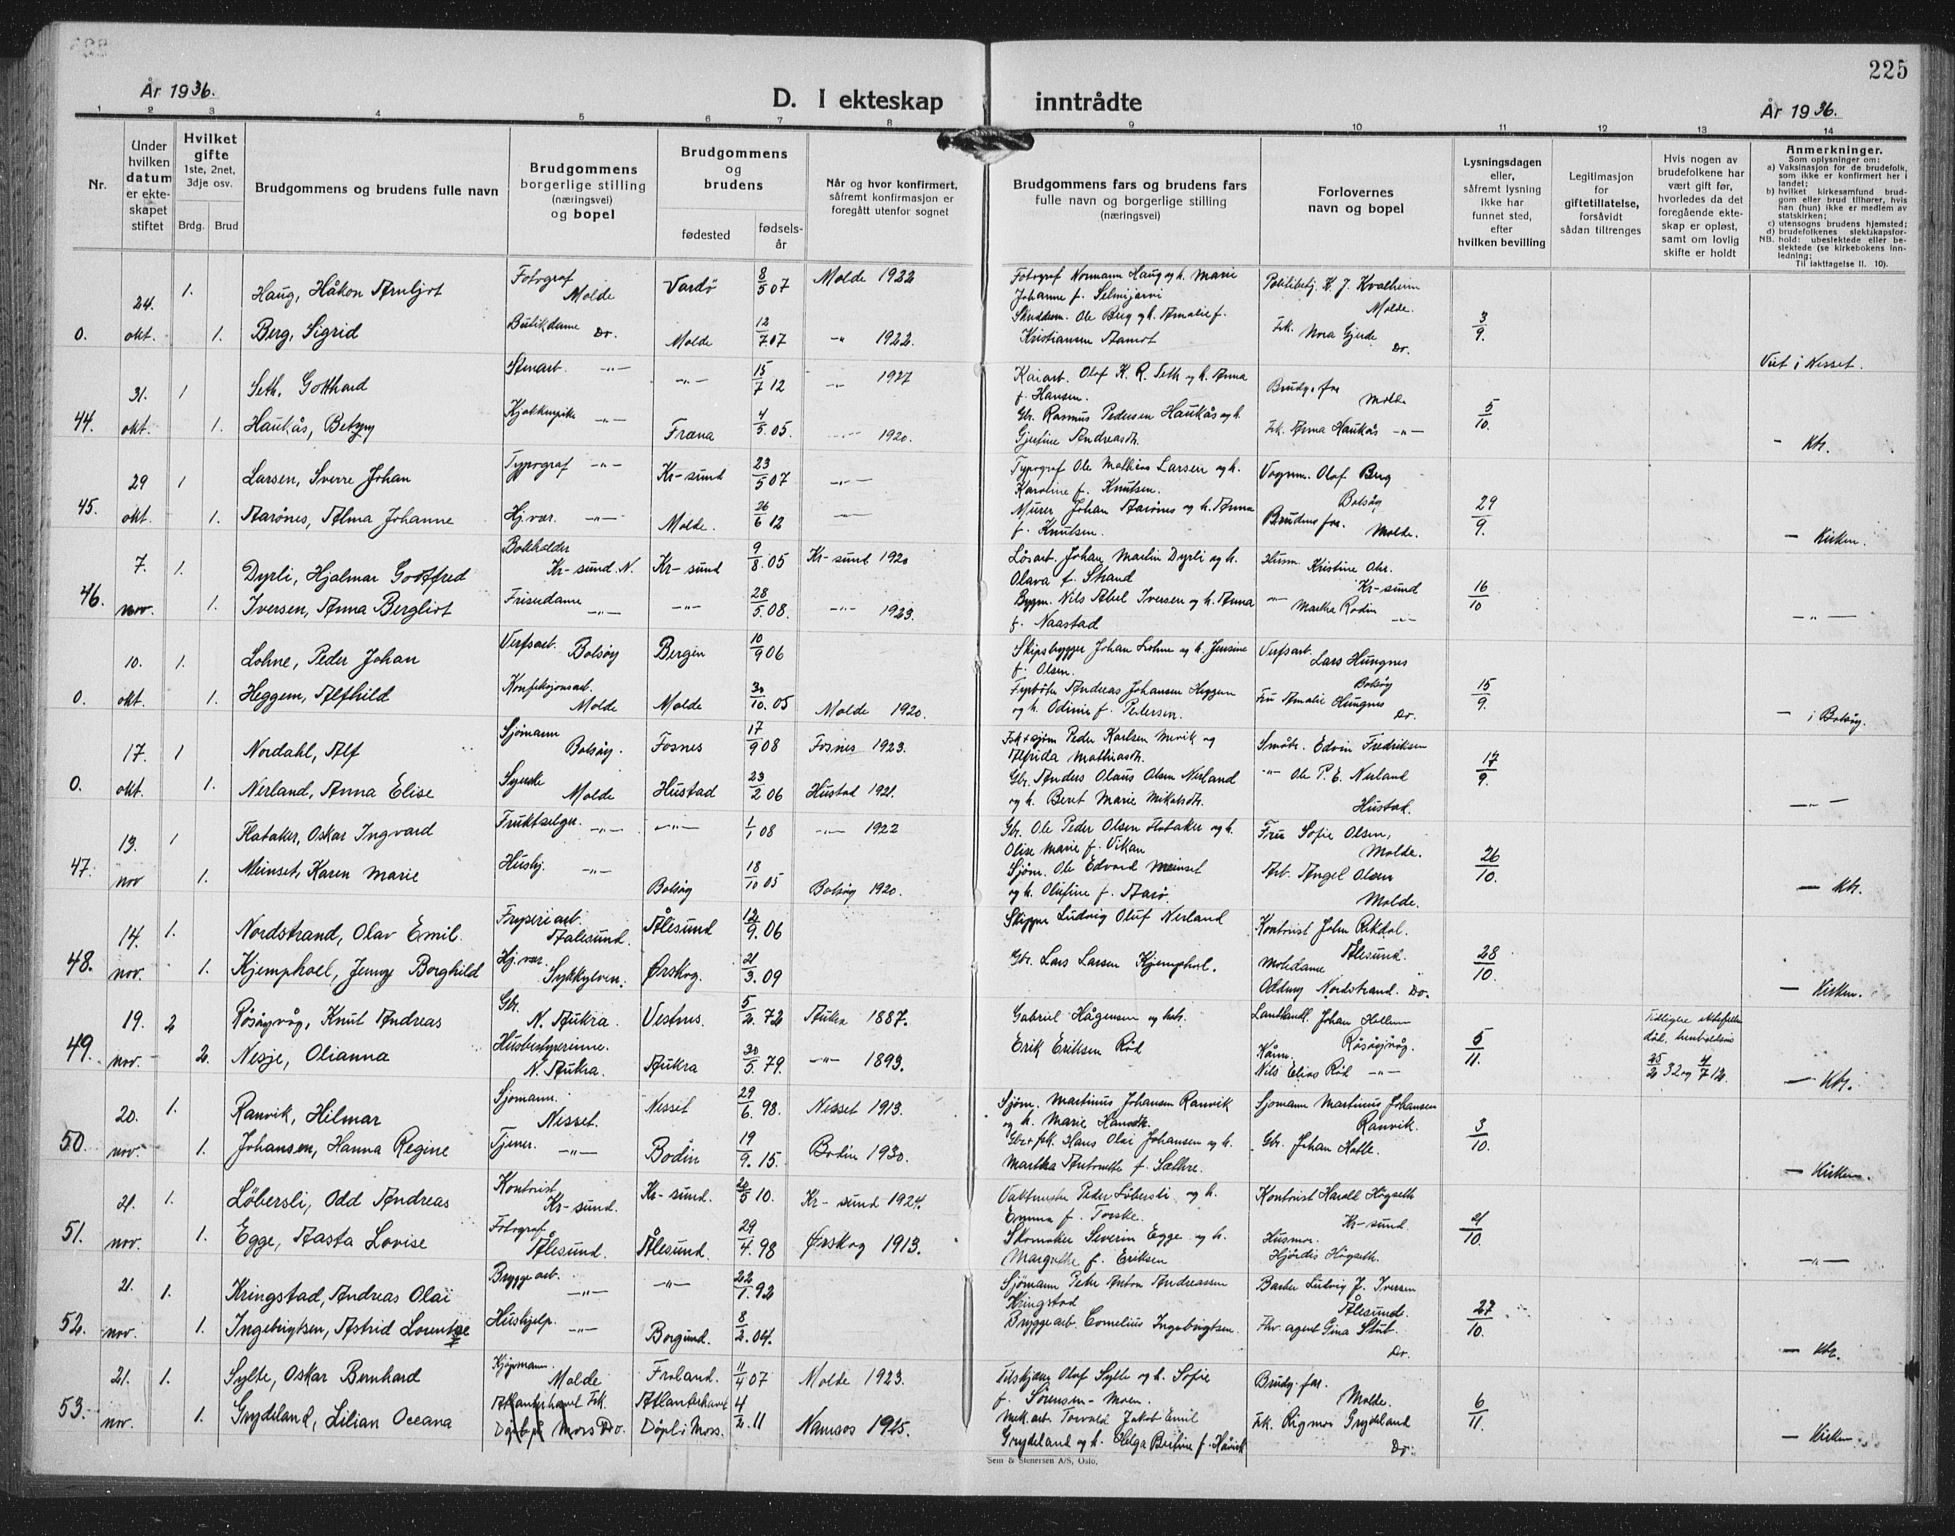 225
År 1936.
D. I ekteskap inntrådte
År 1936.
1 2 3 4 5 6 7 8 9 10 11 12 13 14
Nr.
Under hvilken datum er ekteskapet stiftet
Hvilket gifte 1ste, 2net, 3dje osv.
Brdg. Brud
Brudgommens og brudens fulle navn
Brudgommens borgerlige stilling (næringsvei) og bopel
Brudgommens og brudens
fødested
fødselsår
Når og hvor konfirmert, såfremt konfirmasjon er foregått utenfor sognet
Brudgommens fars og brudens fars fulle navn og borgerlige stilling (næringsvei)
Forlovernes navn og bopel
Lysningsdagen eller, såfremt lysning ikke har funnet sted, efter hvilken bevilling
Legitimasjon for giftetillatelse, forsåvidt sådan tiltrenges
Hvis nogen av brudefolkene har vært gift før, hvorledes da det foregående ekteskap er opløst, samt om lovlig skifte er holdt
Anmerkninger.
Som oplysninger om:
a) Vaksinasjon for de brudefolk, som ikke er konfirmert her i landet;
b) hvilket kirkesamfund brudgom eller brud tilhører, hvis han (hun) ikke er medlem av statskirken;
c) utensogns brudens hjemsted;
d) brudefolkenes slektskapsforhold: ubeslektede eller beslektede (se kirkebokens innledning;
NB. Til iakttagelse ll. 10).
24. 1. Haug, Håkon Arnljot Fotograf Molde Vardø 8/5 07 Molde 1922 Fotograf Normann Haug og h. Marie Johanne f. Selmijarvi Politibetj. K. J. Kvalheim Molde.
0. okt. 1. Berg, Sigrid Butikdame Do. Molde 12/7 07 -"- 1922. Ole Berg og h. Amalie f. Kristiansen Frk. Nora Gjerde Do. 3/9 Viet i Nesset.
31. 1 Seth, Gotthard Stenarb. -"- -"- 15/7 12 -"- 1927 Kaiarb. Olof K. R. Seth og h. Anna f. Hansen. Brudg. far Molde
44. okt. 1. Haukås, Betzy Kjøkkenpike -"- Fræna 4/5 05. 1920. Gbr. Rasmus Pedersen Haukås og h. Gjertine Andreasdtr. Frk. Anna Haukås -"- 5/10. - Ktr.
29 1 Larsen, Sverre Johan Typograf -"- Kr-sund 23/5 07 -"- Typograf Ole Mathias Larsen og h. Karoline f. Knutsen. Vognm. Olaf Berg Bolsøy
45. okt. 1. Aarönes, Alma Johanne Hj. vær. -"- Molde. 26/6 12 -"- Murer Johan Aarönes og h. Anna f. Knutsen. Brudens far. Molde. 29/9. - Kirken.
7. 1. Dyrli, Hjalmar Gottfred Bokholder Kr-sund N. Kr-sund 9/8 05 Kr-sund 1920 Løsarb. Johan Martin Dyrli og h. Olava f. Strand Husm. Kristine Kr-sund
46. nov. 1. Iversen, Anna Bergliot Frisördame -"- -"- 28/5 08. -"- 1923. Bygm. Nils Abel Iversen og h. Anna f. Naastad -"- Martha Rodin -"- 16/10 -"-
10. 1. Lohne, Peder Johan Verfsarb. Bolsøy Bergen 10/9 06 Skipsbygger Johan Lohne og h. Jensine f. Olsen. Verfsarb. Lars Hungnes Bolsøy
0. okt. 1. Heggem, Alfhild Konfeksjonsarb. Molde Molde 30/10 05 Molde 1920. Fyrbøter Andreas Johansen Heggem og h. Odinie f. Pedersen. Fru Amalie Hungnes Do. 15/9. - i Bolsøy.
17. 1 Nordahl, Alf Sjømann Bolsøy. Fosnes 17/9 08 Fosnes 1923. Peder Karlsen og Alfrida Mathiasdtr. Småbr. Edvin Fredriksen
0. okt. 1. Nerland, Anna Elise Syerske Molde Hustad 23/2 06 Hustad 1921. Gbr. Anders Olaus Olsen Nerland og h. Beret Marie Mikalsdtr. -"- Ole P. E. Nerland Hustad. 17/9 -"-
13. 1 Flataker, Oskar Ingvard Fruktselger -"- -"- 1/1 08 -"- 1922 Gbr. Ole Peder Olsen Flataker og h. Olise Marie f. Vikan Fru Sofie Olsen, Molde.
47. nov 1. Meinset, Karen Marie Hushj. -"- Bolsøy 18/10 05 Bolsøy 1920. Sjøm. Ole Edvard Meinset og h. Olufine f. Aarø. Arb. Angel Olsen Molde. 26/10. - Ktr.
14. 1. Nordstrand, Olav Emil. Fryseriarb. Aalesund. Ålesund 12/9. 06 Skipper Ludvig Oluf Nerland Kontorist John Rekdal. Ålesund.
48. nov. 1. Kjemphoel, Jenny Borghild Hj. vær. Sykkylven. Ørskog. 21/3. 09 Gbr. Lars Larsen Kjemphol. Motedame Oddny Nordstrand. Do. 28/10. - Kirken.
19. 2 Røsågvåg, Knut Andreas Gbr. N. Aukra. Vestnes. 5/2. 72 Aukra 1887. Gabriel Hågensen Landhandl. Johan Hellem Røsågvåg.
49. nov. 2. Nesje, Olianna Husbestyrerinne. N. Aukra. Aukra 30/5. 79. -"- 1893. Erik Eriksen Rød Nils Elias Rød -"- 5/11. Tidligere ektefeller død, henholdsvis 25/2 32 og 4/7 12. - Ktr.
20. 1. Ranvik, Hilmar Sjømann. Nesset. Nesset 29/6. 98. Nesset 1913. Sjøm. Martinus Johansen Ranvik og h. Marie Hansdtr. Sjømann Martinus Johansen Ranvik.
50. nov. 1. Johansen, Hanna Regine Tjener. -"- Bodin 19/9. 15. Bodin 1930. Gbr + fsk. Hans Olai Johansen og h. Martha Antonette f. Sæthre. Gbr. Johan Holte. 3/10. - Kirken.
21. 1. Løbersli, Odd Andreas Kontorist Kr-sund. Kr-sund. 20/5 10. Kr-sund 1924. Vaktmester Peder Løbersli og h. Emma f. Torske. Kontorist Harald Høgseth Kr-sund.
51. nov. 1. Egge, Aasta Lovise Fotograf Ålesund. Ålesund. 29/4. 98 Ørskog 1913. Skomaker Severin Egge og h. Margrethe f. Eriksen Husmor. Hjørdis Høgseth. 21/10. -"-
21. 1. Kringstad, Andreas Olai Bryggearb. -"- -"- 22/1. 92 Sjømann Peter Anton Andreassen Kringstad Barber Ludvig J. Iversen Ålesund.
52. nov. 1. Ingebrigtsen, Astrid Lorentze Hushjelp -"- Borgund. 8/2. 04. Bryggearb. Cornelius Ingebrigtsen. Gina Stut. Do. 27/10. - Ktr.
21. 1. Sylte, Oskar Bernhard Kjøpmann. Molde Froland. 11/4 07 Molde 1923. Olaf Sylte og h. Sofie f. Sørensen-Moen. Brudg. far. Molde.
53. nov. 1. Grydeland, Lilian Oceana Atlanterhavet Frk. Mors Do. Atlanterhavet Døpt i Mors. 4/2. 11 Namsos 1925. Mek. arb. Torvald Jakob Emil Grydeland og h. Helga Bertine f. Håvik Frk. Rigmor Grydeland Do. 6/11. - Kirken.
Sem & Stenersen A/S, Oslo.